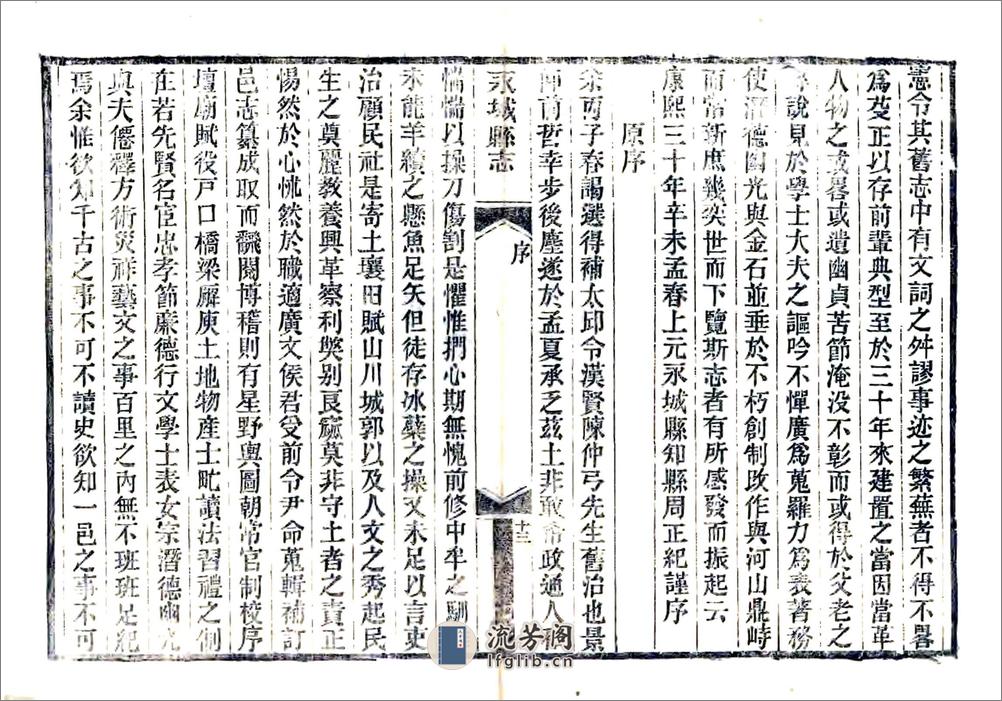 憲令其舊志中有文詞之舛謬事迹之繁蕪者不得不畧
爲芟正以存前輩典型至於三十年來建置之當因當革
人物之或畧或遺幽貞苦節淹没不彰而或得於父老之
說見於學士大夫之謳吟不憚廣爲蒐羅力爲表著務
使潛德幽光與金石並垂於不朽創制改作與河山鼎峙
而常新庶幾奕世而下覽斯志者有所感發而振起云
康熙三十年辛未孟春上元永城縣知縣周正紀謹序
原序
余丙子春謁選得補太邱令漢賢陳仲弓先生舊治也景
前哲幸步後塵遂於孟夏承乏茲土非敢希政通人
永城縣志
序
十三
惴惴以操刀傷割是懼惟捫心期無愧前修中牟之馴
未能羊續之懸魚足矣但徒存冰蘗之操又未足以言吏
治顧民社是寄土壤田賦山川城郭以及人文之秀起民
生之奠麗教養興革察利獘别良窳莫非守土者之責正
惕然於心怵然於職適廣文侯君受前令尹命蒐輯補訂
邑志纂成取而繙閱博稽則有星野輿圖朝常官制校序
壇廟賦役戸口橋梁廨庾土地物産士吪讀法習禮之制
在若先賢名臣忠孝節廉德行文學士表女宗潛德幽光
與夫僊釋方術災祥藝文之事百里之内無不班班足紀
焉余惟欲知千古之事不可不讀史欲知一邑之事不可
流芳阁
lfglib.cn